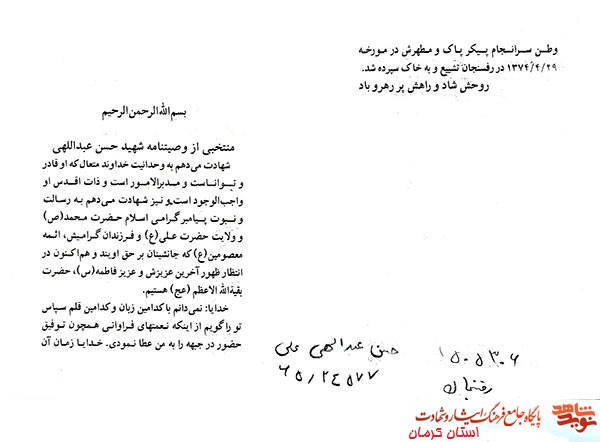 وطن سرانجام پیکر پاک و مطهرش در مورخه
۱۳۷۴/۴/۲۹ در رفسنجان تشییع و به خاک سپرده شد.
روحش شاد و راهش پر رهرو باد
بسم الله الرحمن الرحیم
منتخبی از وصیتنامه شهید حسن عبداللهی
شهادت می‌دهم به وحدانیت خداوند متعال که او قادر
و تـوانـاست و مدبرالامور است و ذات اقدس او
واجب‌الوجود است. و نیز شهادت می‌دهم به رسالت
و نبوت پیامبر گرامی اسلام حضرت محمد(ص)
و ولایت حضرت علی(ع) و فرزندان گرامیش، ائمه
معصومین(ع) که جانشینان بر حق اویند و هم‌اکنون در
انتظار ظهور آخرین عزیزش و عزیز فاطمه(س)، حضرت
بقیة‌الله الاعظم (عج) هستیم.
خدایا: نمی‌دانم با کدامین زبان و کدامین قلم سپاس
تو را گویم از اینکه نعمتهای فراوانی همچون توفیق
حضور در جبهه را به من عطا نمودی. خدایا زمان آن
حسن عبدالهی علی
۶۵۱۲۴۵۷۷
۱۵۰۵۳۰۶
رفسنجان
نوید شاهد
پایگاه جامع فرهنگ ایثار و شهادت
استان کرمان